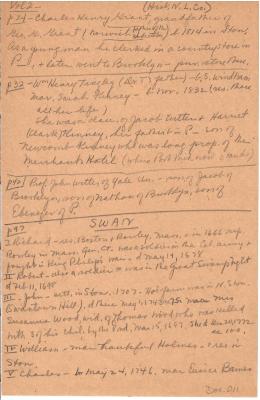 Vol. 2 (Hist. N.L. Co.)
p 24 - Charles Henry Grant, grandfather of
Geo. G. Grant (Norwich b 1814 in Ston.
As a young man he clerked in a country store in
P-, & later went to Brooklyn -
p 33 - Wm Henry Tingley father - b. S. Windham
mar. Sarah Kinney - Nov. 1832 (res. there
all her life)
She was a desc. of Jacob Witter & Harriet
Kinney, his father in P- son of
Newcomb Kinney who was long prop. of the
Merchants Hotel
p 40 Prof. John Witter, of Yale Un. - son of Jacob of
Brooklyn, son of Nathan of Brooklyn, son of
Ebenezer of P.
p 47 SWAN
I Richard - res. Boston & Rowley, Mass., in 1666 rep.
Rowley in Mass. Gen. Ct. was a soldier in the Col. army &
fought in King Philip's war - d May 14, 1678
II Robert - also a soldier & was in the Great Swamp fight
d Feb. 11, 1698
III John - sett. in Ston. 1707. His farm was in N. Ston.
(Swantown Hill), d there May 1, 1743 mar. Mrs
Susanna Wood, wid. of Thomas Wood who was killed
with 3 of his chil. by the Ind. Mar. 15, 1697. She d Dec 20, 1772
ae 100.
IV William - mar. Thankful Holmes - res in
Ston.
V Charles - b. May 24, 1746, mar Eunice Barnes
Doc. 211